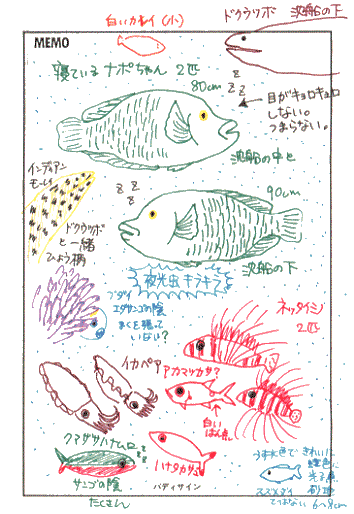 白いカレイ (小)
ドクウツボ 沈船の下
MEMO
寝ているナポちゃん 2匹
80cm
z z z
目がキョロキョロ
しない。
つまらない。
沈船の中と
インディアン
モーレイ
ドクウツボ
と一緒
ひょう柄
z z z
90cm
沈船の下
夜光虫 キラキラ
ブダイ
エダサンゴの陰
まくを張って
いない?
ネッタイミノ
2匹
イカペア
アカマツカサ?
白い
はん点
クマササハナムロ
サンゴの陰
たくさん
ハナタカサゴ
バディサイン
うす水色で きれい!
スズメダイ
ではない
6〜8cm